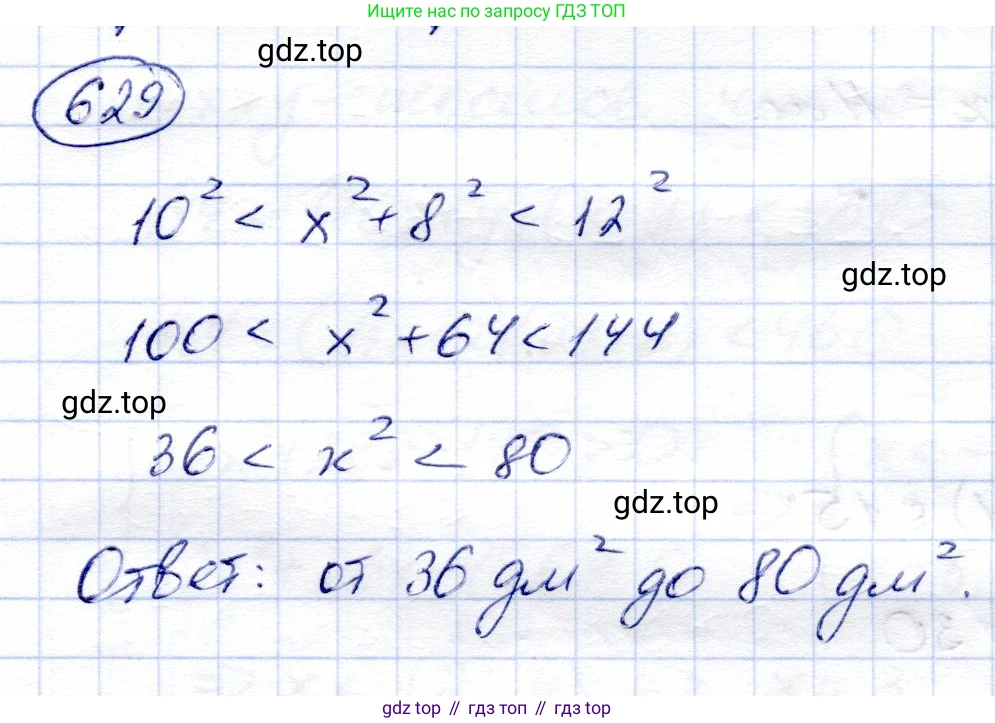 Ищите нас по запросу ГДЗ ТОП
gdz.top
629
10² < x² + 8² < 12²
gdz.top
100 < x² + 64 < 144
gdz.top
36 < x² < 80
gdz.top
Ответ: от 36 дм² до 80 дм².
gdz.top // гдз топ // gdz.top